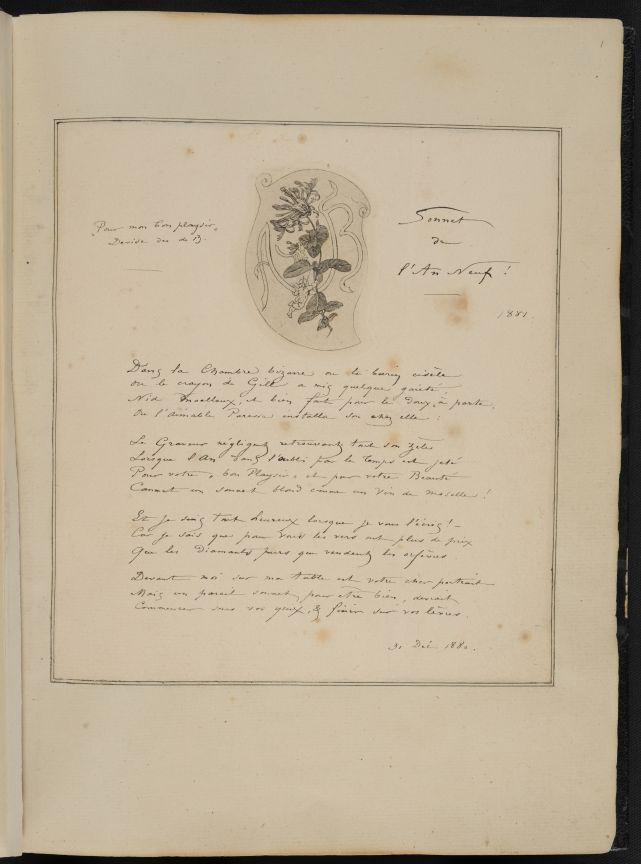 1
"Pour mon bon playsir"
Devise des de B.
Sonnet
de
l'An Neuf!
1881.
Dans la Chambre bizarre ou le burin cisèle
ou le crayon de Gill a mis quelque gaieté
Nid moelleux, et bien fait pour le doux à parte,
Ou l'aimable Paresse installa son chez elle:
Le Graveur négligent retrouvant tout son zèle
Lorsque l'An dans l'oubli par le temps est jeté
Pour votre "bon Playsir" et pour votre Beauté
Commet un sonnet blond comme un vin de moselle!
Et je suis tout heureux lorsque je vous l'écris! -
Car je sais que pour vous les vers ont plus de prix
Que les Diamants purs que vendent les orfèvres
Devant moi sur ma table est votre cher portrait
Mais un parait sonnet, pour être bien, devrait
Commencer sous vos yeux, & finir sur vos lèvres.
31 Déc 1880.